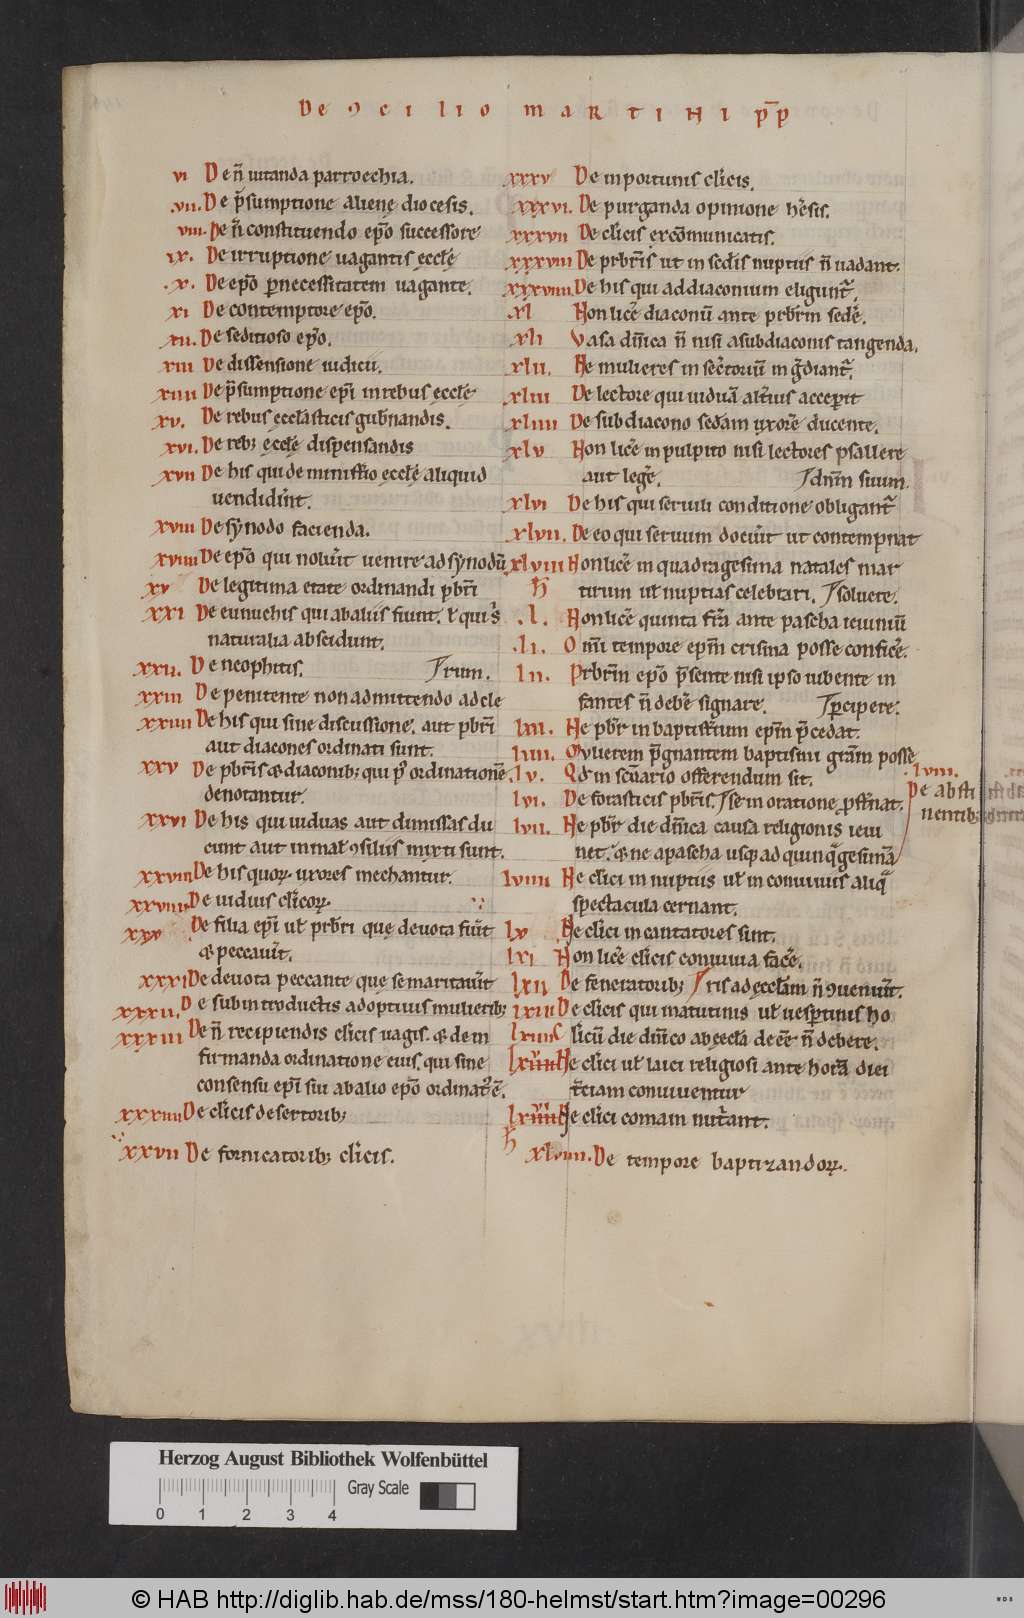 De ꝯcilio martini pp̄
vi De n̄ uitanda parroechia.
.vii. De p̄sumptione alienę diocesis.
viii. De n̄ constituendo ep̄o successore
ix. De irruptione uagantis ęccłę
.x. De ep̄o ꝑ necessitatem uagante.
xi De contemptore ep̄o.
xii. De seditioso ep̄o.
xiii De dissensione iudicii.
xiiii De p̄sumptione ep̄i in rebus ęccłę
xv. De rebus ęccłasticis gub̄nandis.
xvi. De reb; ęccłę dispensandis
xvii De his qui de ministerio ęccłę aliquid
uendider̄t.
xviii De sẏnodo facienda.
xviiii De ep̄o qui noluer̄t uenire ad sẏnodū
xx De legitima etate ordinandi pb̄ri
xxi De eunuchis qui ab aliis fiunt. ł qui s̄
naturalia abscidunt.
xxii. De neophitis. rum.
xxiii De penitente non admittendo ad cle
xxiiii De his qui sine discussione. aut pb̄ri
aut diacones ordinati sunt.
xxv De pb̄ris & diaconib; qui p̄ ordinationē
denotantur.
xxvi De his qui uiduas aut dimissas du
cunt aut in mał ꝯsiliis mixti sunt.
xxviii De his quoꝝ uxores mechantur.
xxviiii De uiduis cłicoꝝ.
xxx De filia ep̄i uł pr̄bri que deuota fuer̄t
& peccauer̄t.
xxxi De deuota peccante que se maritauer̄t
xxxii. De subintroductis adoptiuis mulierib;
xxxiii De n̄ recipiendis cłicis uagis. & de in
firmanda ordinatione eius. qui sine
consensu ep̄i siu ab alio ep̄o ordinat' ē.
xxxiiii De cłicis desertorib;
xxvii De fornicatorib; cłicis.
xxxv De inportunis cłicis.
xxxvi. De purganda opinione her̄sis.
xxxvii De cłicis excōmunicatis.
xxxviii De pr̄bris ut in sed̄is nuptiis n̄ uadant.
xxxviiii. De his qui ad diaconium eligunt'.
xl Non licē diaconū ante pr̄brm sedē.
xli Vasa dn̄ica n̄ nisi a subdiaconis tangenda.
xlii. Ne mulieres in secr̄toriū ingr̄diant'.
xliii De lectore qui uiduā alt̄ius acceꝑit
xliiii De subdiacono sedam uxorē ducente.
xlv Non licē in pulpito nisi lectores psallere
aut legē. dn̄m suum.
xlvi De his qui seruili conditione obligant'
xlvii. De eo qui seruum docuer̄t ut contempnat
xlviii Non licē in quadragesima natales mar
tirum uł nuptias celebrari. soluere.
.l. Non licē quinta fr̄ia ante pascha ieiuniū
.li. Omi tempore ep̄m crisma posse conficē.
lii. Prb̄rm ep̄o p̄sente nisi ipso iubente in
fantes n̄ debē signare. ꝑcipere.
liii. Ne pb̄r in baptist̄ium ep̄m p̄cedat.
liiii. Mulierem p̄gnantem baptismi gr̄am posse
lv. Qd in sc̄uario offerendum sit.
lvi. De forasticis pb̄ris. se in oratione ꝓst̄nat.
lvii. Ne pb̄r die dn̄ica causa religionis ieiu
net. & ne a pascha usq; ad quinq̄gesimā
.lviii. De absti
nentib;
lviiii Ne cłici in nuptiis uł in conuiuiis aliq̄
spectacula cernant.
lx Ne cłici incantatores sint.
lxi Non licē cłicis conuiuia facē.
lxii De feneratorib; ris ad ęccłam n̄ ꝯuener̄t.
lxiii De cłicis qui matutinis uł uesꝑtinis ho
licū die dn̄ico ab ęccła deēe n̄ debere.
Ne cłici uł laici religiosi ante horā diei
t̄ciam conuiuentur
Ne cłici comam nutr̄ant.
xlviiii. De tempore baptizandoꝝ.
Herzog August Bibliothek Wolfenbüttel
Gray Scale
0 1 2 3 4
© HAB http://diglib.hab.de/mss/180-helmst/start.htm?image=00296